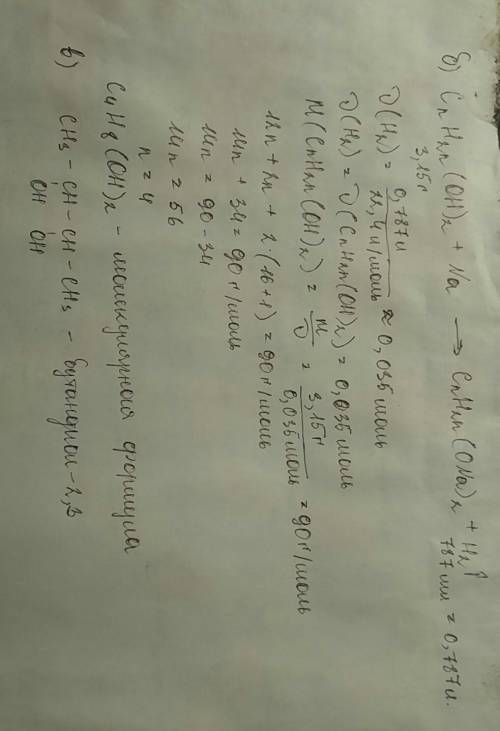 б) CnH2n(OH)2 + Na → CnH2n(ONa)2 + H2↑
3,15г 787 мл = 0,787 л.
ν(H2) = 0,787 л / 22,4 л/моль ≈ 0,035 моль
ν(H2) = ν(CnH2n(OH)2) = 0,035 моль
M(CnH2n(OH)2) = m/ν = 3,15 г / 0,035 моль = 90 г/моль
12n + 2n + 2·(16+1) = 90 г/моль
14n + 34 = 90 г/моль
14n = 90 - 34
14n = 56
n = 4
C4H8(OH)2 - молекулярная формула
в) CH3 - CH - CH - CH3 - бутандиол-2,3
OH OH